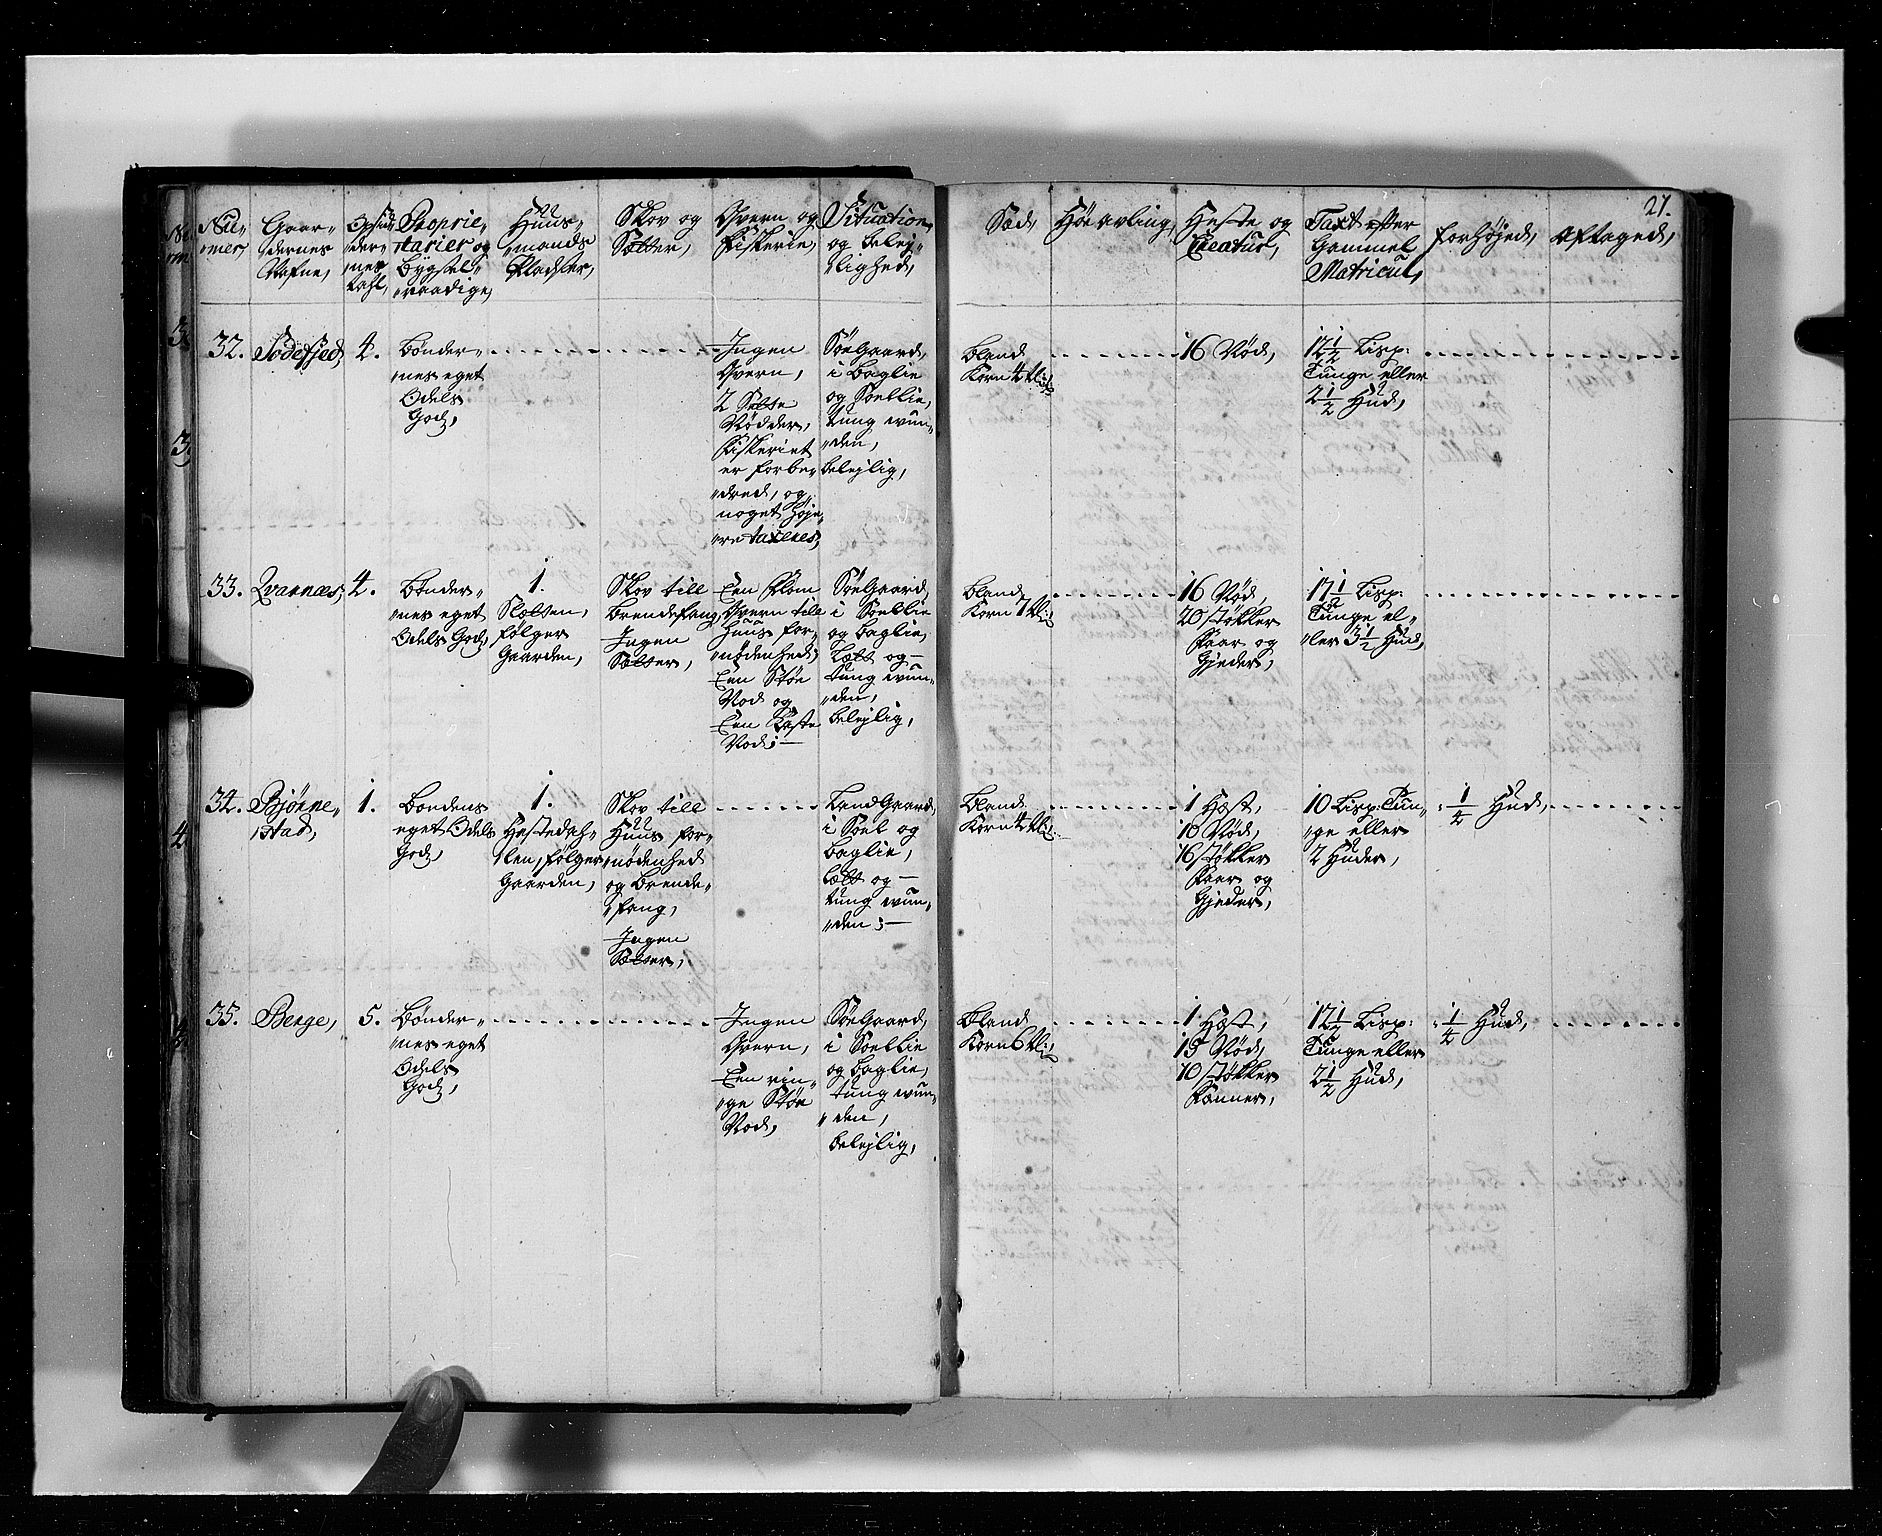 27.
Nu-
mer,
Gaar-
dernes
Nafne,
Opsid-
der-
nes
tahl,
Proprie-
tarier og
bygsel-
raadige,
Huus-
mands
Pladser,
Skov og
Sætter,
Qvern og
Fiskerie,
Situation,
og belej-
lighed,
Sæd,
Høe avling,
Heste og
Creatur,
Taxt efter
Gammel
Matricul,
forhøjed,
aftaged,
32. Sodefjed,
4.
Bønder-
nes eget
Odels
Godz,
Ingen
Qvern,
2 Sette
Nødder,
Fiskeriet
er forbe-
dred, og
noget høje-
re taxeres,
Søe Gaard,
i baglie
og Soellie,
tung wun-
den,
belejlig,
bland
Korn 4
16 Nød,
12 1/2 Lisp:
Tunge eller
2 1/2 Hud,
33. Qvarnæs,
4.
Bønder-
nes eget
Odels Godz,
1.
Sletten,
følger
Gaarden,
Skov till
brendefang,
Ingen
Sætter,
Een Flom
Qvern till
Huus for-
nødenhed,
Een Støe
Vod og
Een Kaste
Vod;
Søe Gaard,
i Soellie
og baglie,
Lætt og
tung wun-
den,
belejlig,
bland
Korn 7
16 Nød,
20 støkker
Faar og
Gjeder,
17 1/2 Lisp:
Tunge el-
ler 3 1/2 Hud,
34. Bjørne-
stad,
1.
Bondens
eget Odels
Godz,
1.
Hestedah-
len, følger
Gaarden,
Skov till
Huus for-
nødenhed
og brende-
fang,
Ingen
Sætter,
Land Gaard,
i Soel og
baglie,
Lætt og
tung wun-
den;
bland
Korn 4
1 Hæst,
10 Nød,
16 støkker
Faar og
Gjeder,
10 Lisp: Tun-
ge eller
2 Huder,
1/4 Hud,
35. Berge,
5.
Bønder-
nes eget
Odels
Godz,
Ingen
Qvern,
Een rin-
ge Støe
Vod,
Søe Gaard,
i Soellie
og baglie,
tung wun-
den,
belejlig,
bland
Korn 6
1 Hæst,
15 Nød,
10 støkker
Fonner,
12 1/2 Lisp:
Tunge eller
2 1/2 Hud,
1/4 Hud,